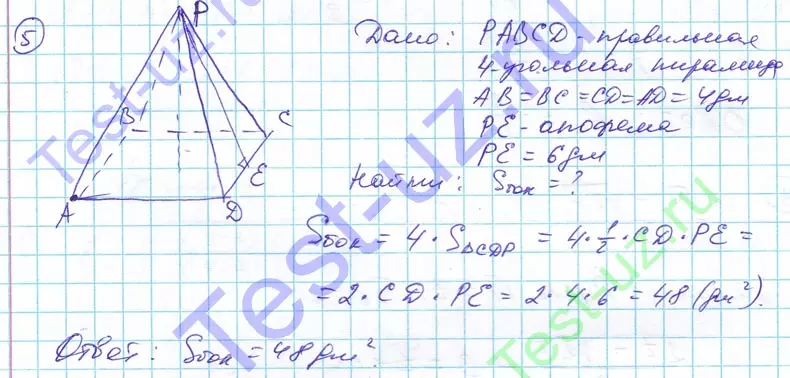 5
P
Дано: PABCD - правильная
4-угольная пирамида
AB = BC = CD = AD = 4 дм
PE - апофема
PE = 6 дм
Найти: Sбок = ?
B
C
E
A
D
Sбок = 4 · S△CDP = 4 · 1/2 · CD · PE =
= 2 · CD · PE = 2 · 4 · 6 = 48 (дм²).
Ответ: Sбок = 48 дм².
Test-uz.ru
Test-uz.ru
Test-uz.ru